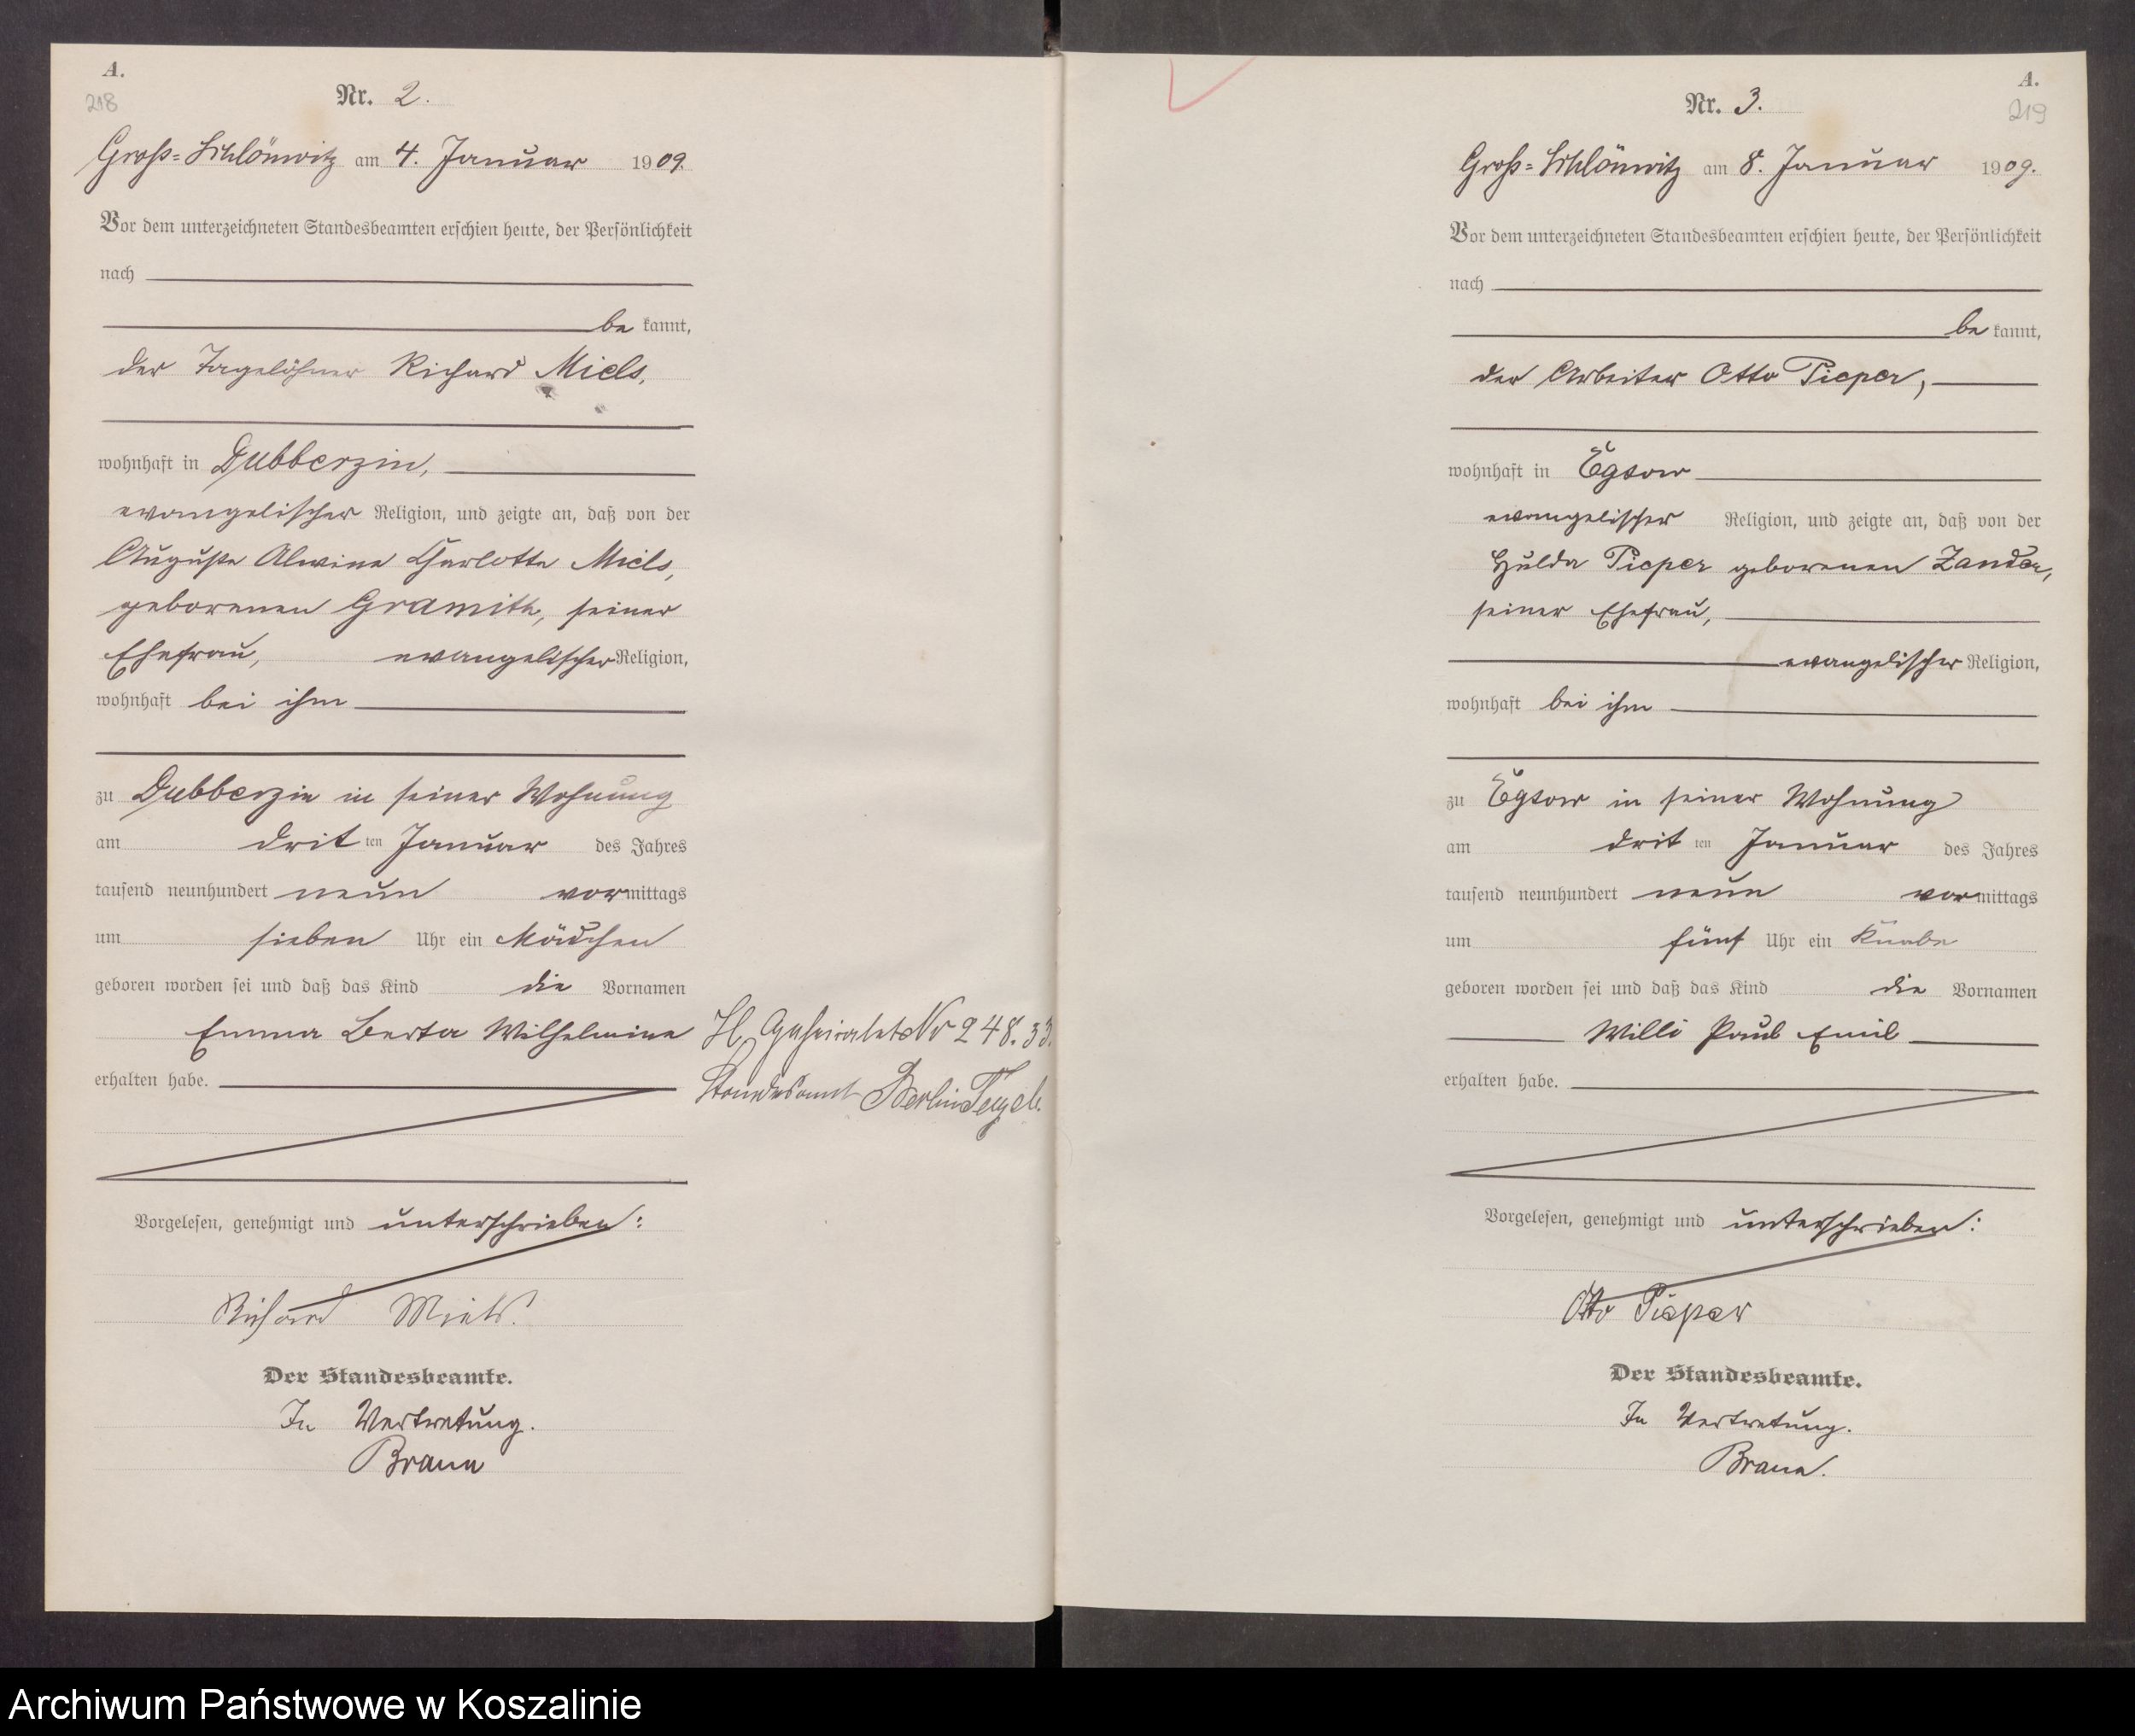 A.
218
Nr. 2.
Groß-Schlönwitz am 4. Januar 1909.
Vor dem unterzeichneten Standesbeamten erschien heute, der Persönlichkeit
nach
be kannt,
der Tagelöhner Richard Miels,
wohnhaft in Dubberzin,
evangelischer Religion, und zeigte an, daß von der
Auguste Alwine Charlotte Miels,
geborenen Gramith, seiner
Ehefrau, evangelischer Religion,
wohnhaft bei ihm
zu Dubberzin in seiner Wohnung
am dritten Januar des Jahres
tausend neunhundert neun vormittags
um sieben Uhr ein Mädchen
geboren worden sei und daß das Kind die Vornamen
Emma Berta Wilhelmine
erhalten habe.
H. Geheiratet Nr 248.33.
Standesamt Berlin Tegel.
Vorgelesen, genehmigt und unterschrieben:
Richard Miels.
Der Standesbeamte.
In Vertretung.
Braun
A.
219
Nr. 3.
Groß-Schlönwitz am 8. Januar 1909.
Vor dem unterzeichneten Standesbeamten erschien heute, der Persönlichkeit
nach
be kannt,
der Arbeiter Otto Pieper,
wohnhaft in Egsow
evangelischer Religion, und zeigte an, daß von der
Hulda Pieper geborenen Zander,
seiner Ehefrau,
evangelischer Religion,
wohnhaft bei ihm
zu Egsow in seiner Wohnung
am dritten Januar des Jahres
tausend neunhundert neun vormittags
um fünf Uhr ein Knabe
geboren worden sei und daß das Kind die Vornamen
Willi Paul Emil
erhalten habe.
Vorgelesen, genehmigt und unterschrieben:
Otto Pieper
Der Standesbeamte.
In Vertretung.
Braun.
Archiwum Państwowe w Koszalinie